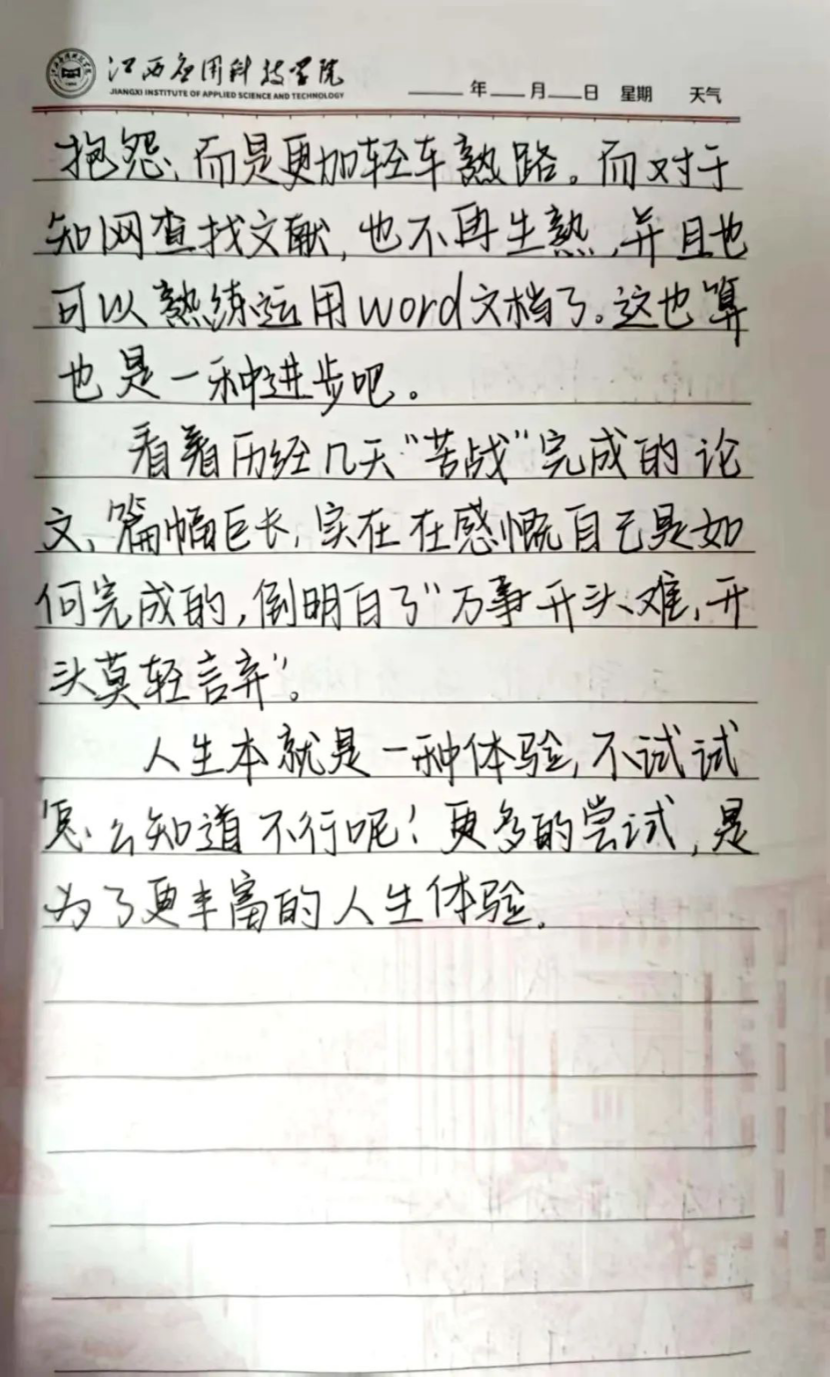 江西应用科技学院
JIANGXI INSTITUTE OF APPLIED SCIENCE AND TECHNOLOGY
年 月 日 星期 天气
抱怨、而是更加轻车熟路。而对于
知网查找文献,也不再生熟,并且也
可以熟练运用word文档了。这也算
也是一种进步吧。
看着历经几天“苦战”完成的论
文、篇幅巨长,实在在感慨自己是如
何完成的,倒明白了“万事开头难,开
头莫轻言弃”。
人生本就是一种体验,不试试
怎么知道不行呢!更多的尝试,是
为了更丰富的人生体验.